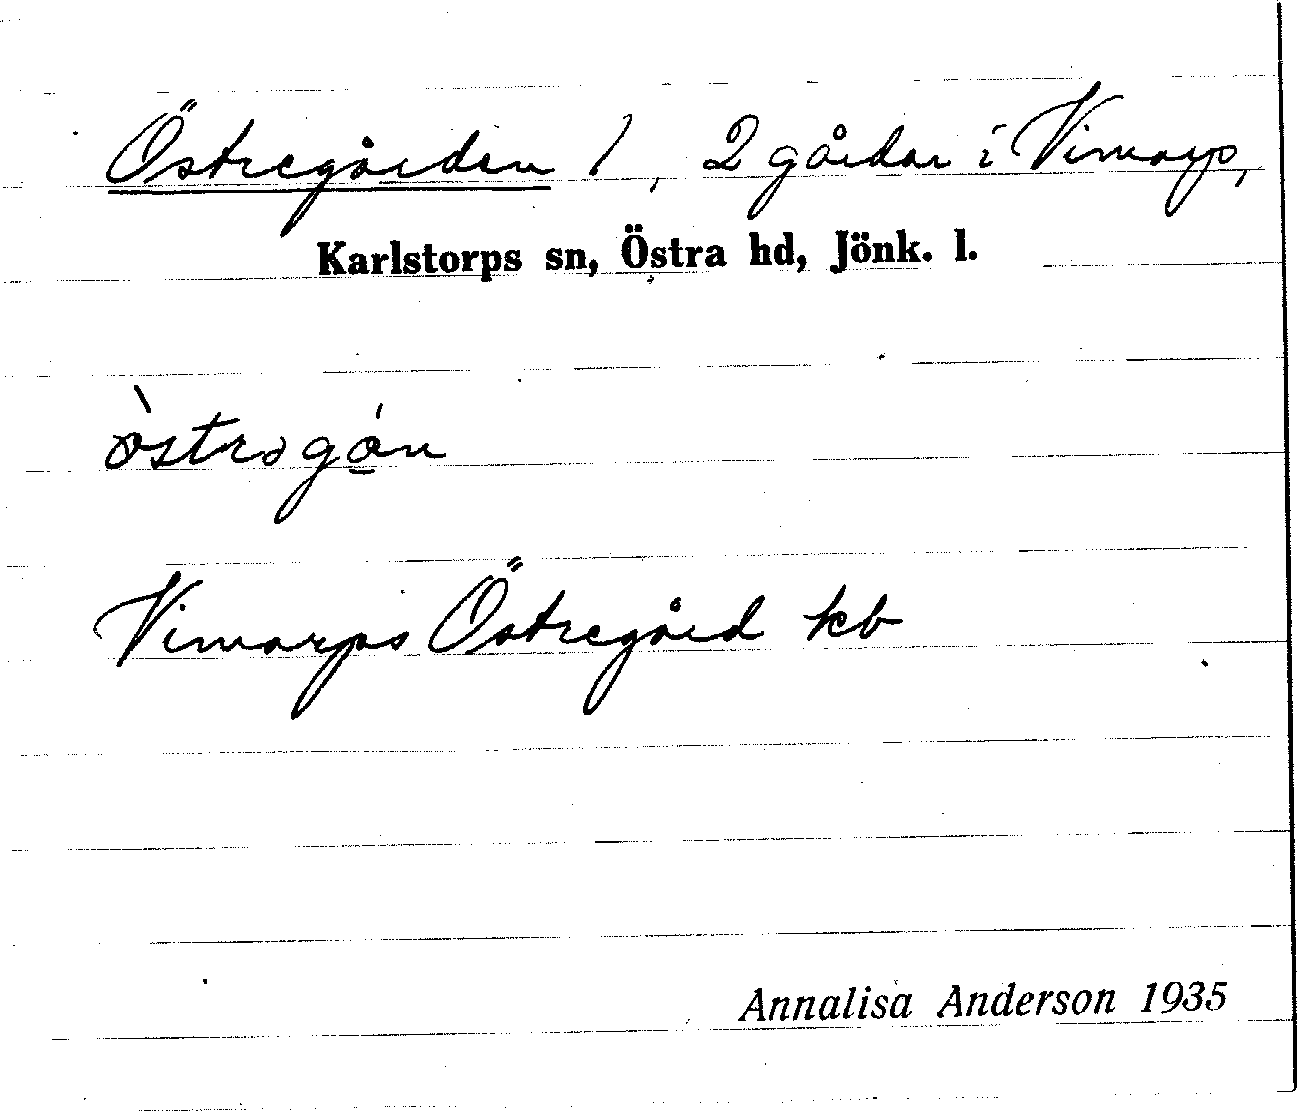 Östregården 1, 2 gårdar i Vimarp,
Karlstorps sn, Östra hd, Jönk. l.
Vimarps Östregård kb
Annalisa Anderson 1935